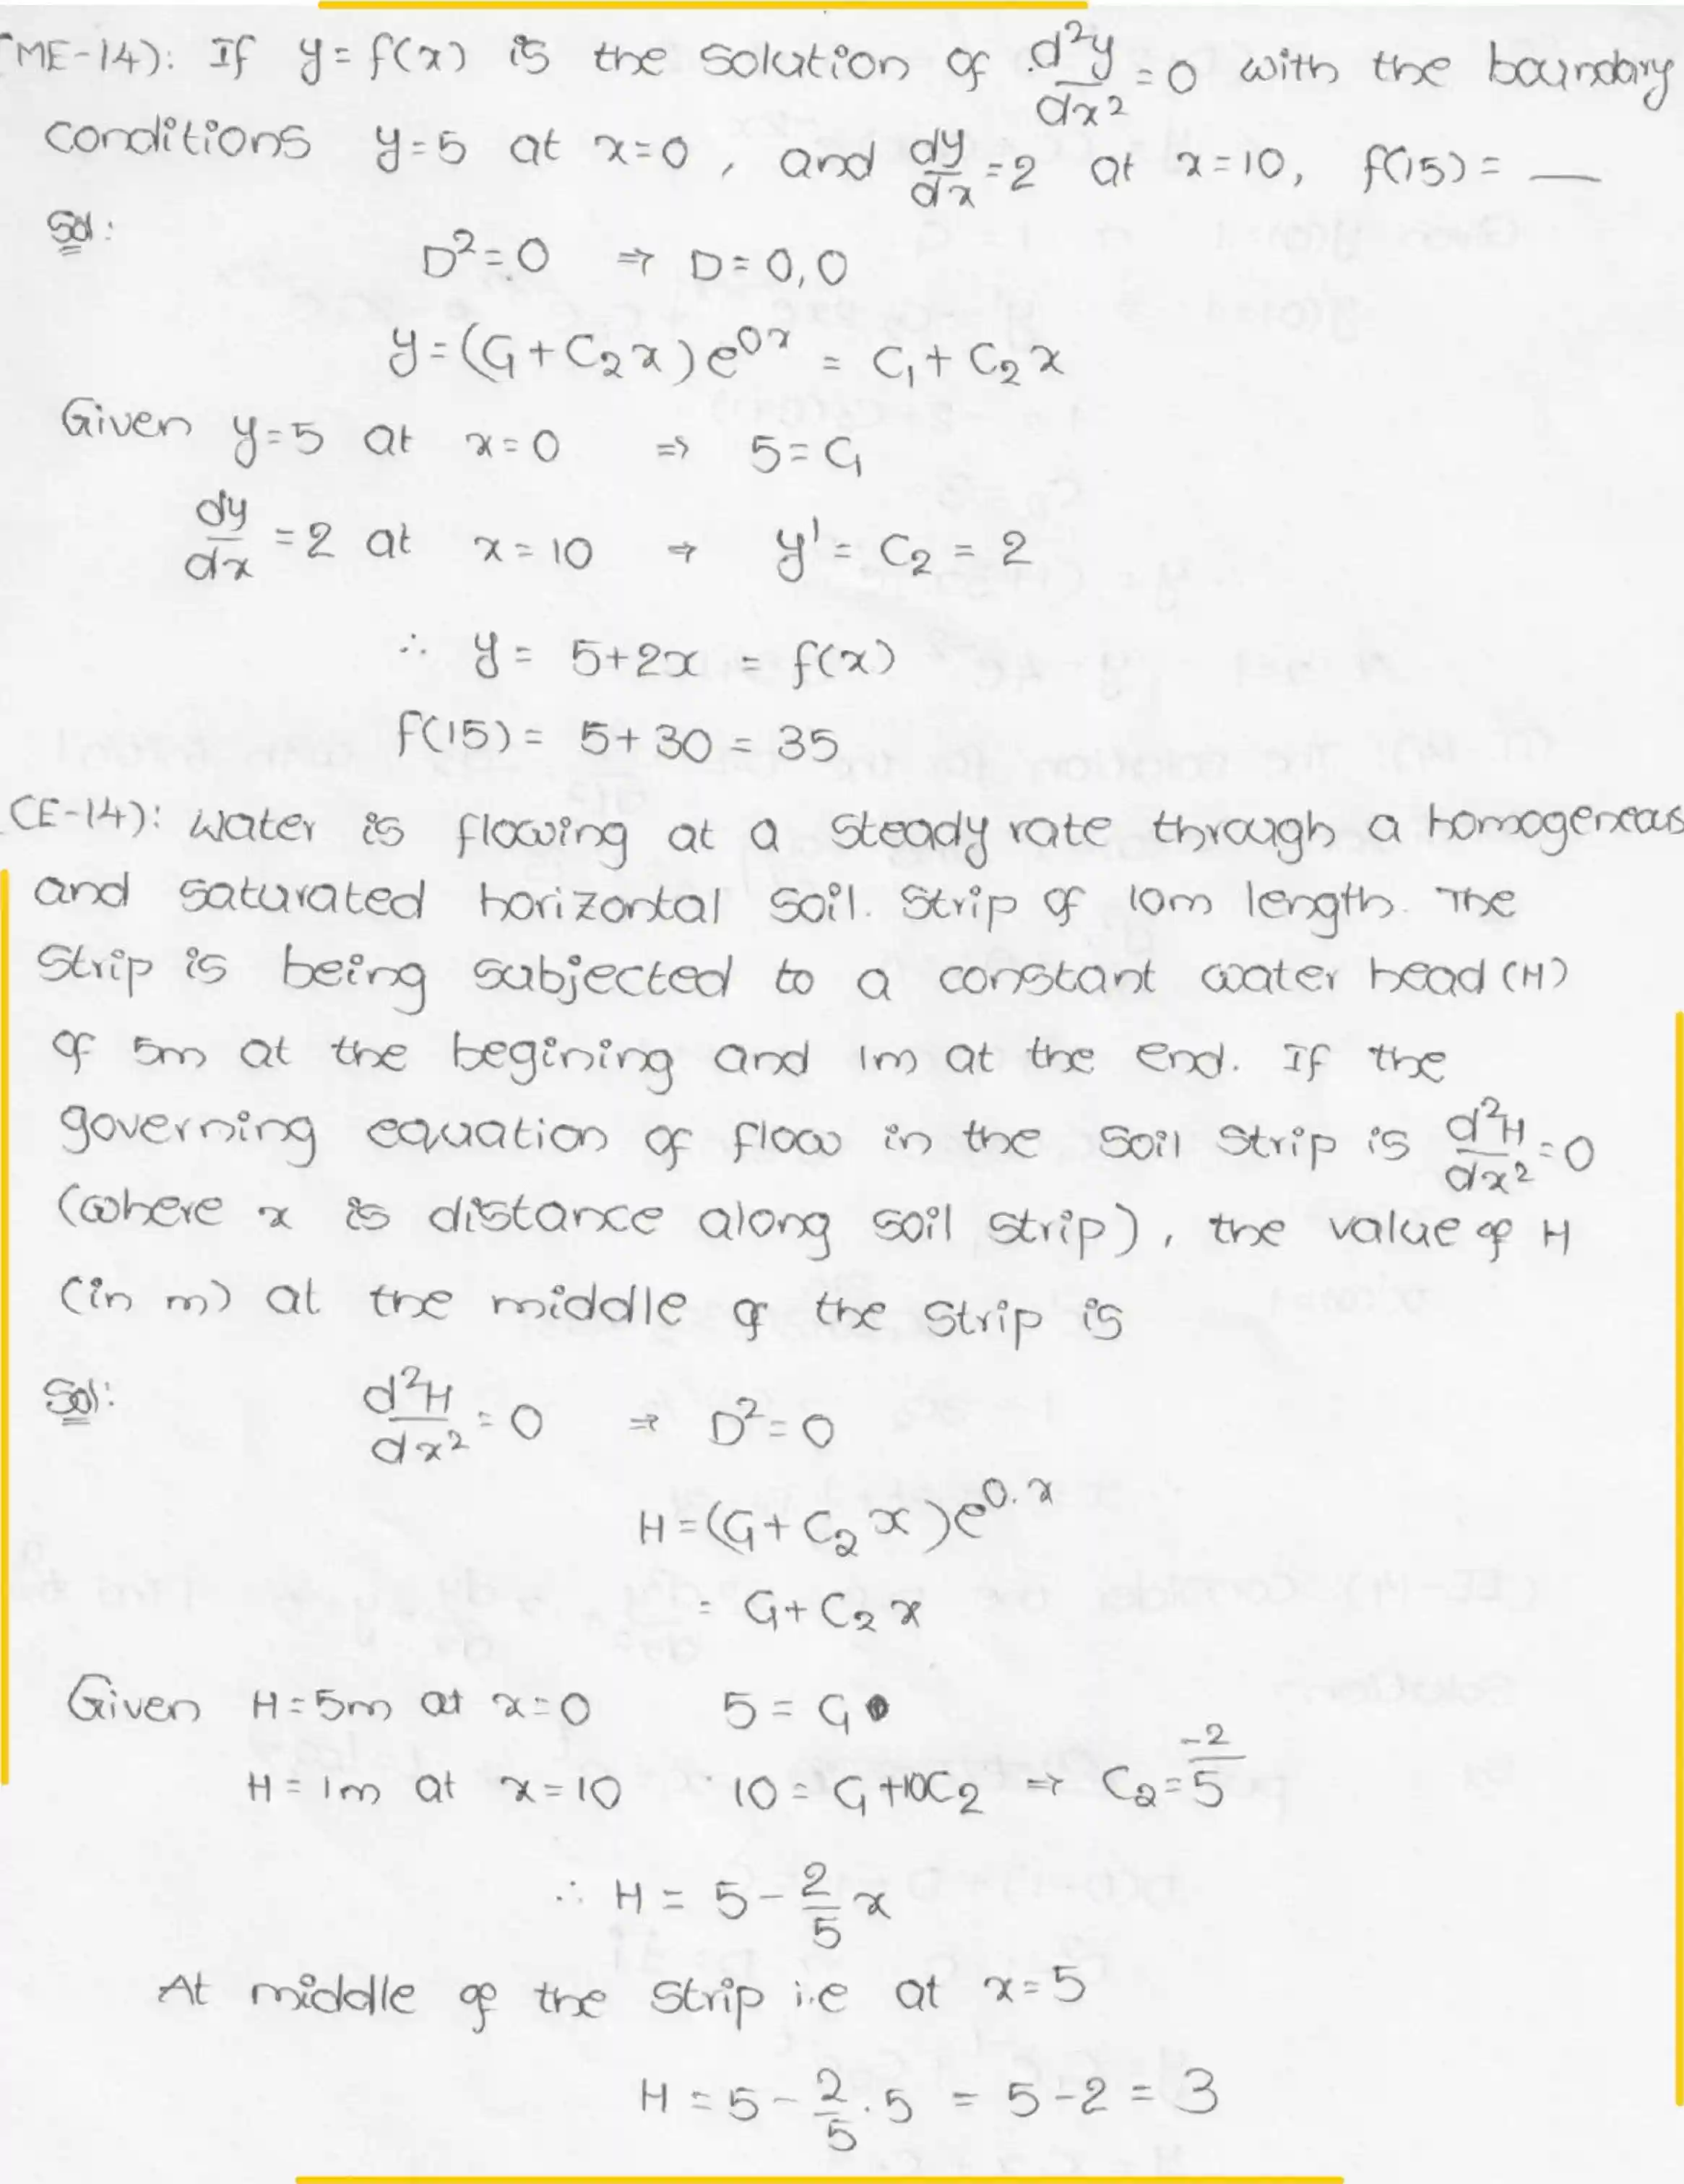 (ME-14): If y=f(x) is the solution of d²y/dx²=0 with the boundary
conditions y=5 at x=0, and dy/dx=2 at x=10, f(15)= __
Sol:
D²=0 ⇒ D=0,0
y=(C₁+C₂x)e^{0x} = C₁+C₂x
Given y=5 at x=0 ⇒ 5=C₁
dy/dx=2 at x=10 ⇒ y'=C₂=2
∴ y= 5+2x = f(x)
f(15)= 5+30=35
(CE-14): Water is flowing at a steady rate through a homogeneous
and saturated horizontal soil. Strip of 10m length. The
Strip is being subjected to a constant water head (H)
of 5m at the begining and 1m at the end. If the
governing equation of flow in the soil strip is d²H/dx²=0
(where x is distance along soil strip), the value of H
(in m) at the middle of the strip is
Sol:
d²H/dx²=0 ⇒ D²=0
H=(C₁+C₂x)e^{0.x}
= C₁+C₂x
Given H=5m at x=0 5=C₁
H=1m at x=10 10=C₁+10C₂ ⇒ C₂=-2/5
∴ H = 5-2/5 x
At middle of the strip i.e at x=5
H = 5-2/5.5 = 5-2 = 3